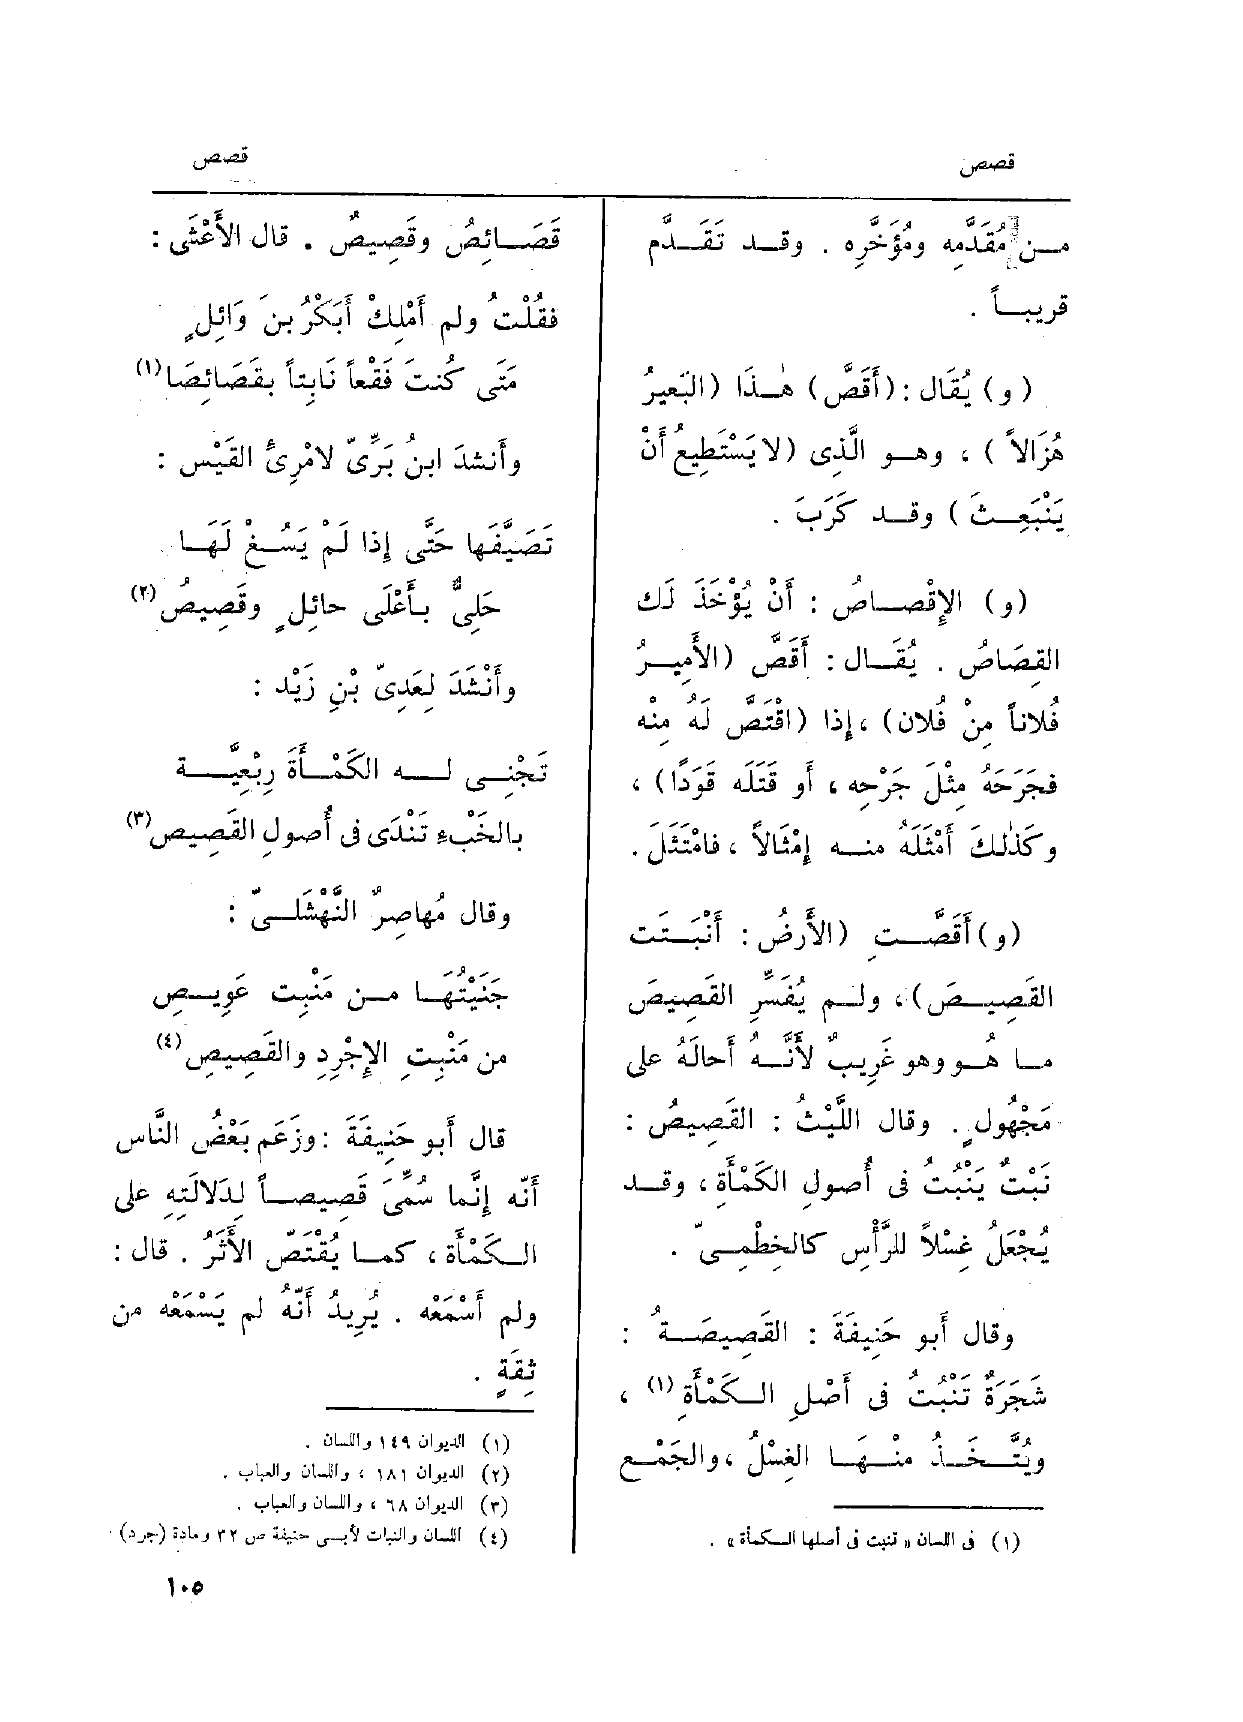 قصص
قصص
مــن مُقَدَّمِه ومُؤَخَّرِه . وقــد تَقَــدَّم
قريبــاً .
( و ) يُقَال : (أَقَصَّ) هٰــذَا (البَعِيرُ
هُزَالاً ) ، وهــو الَّذِى (لا يَسْتَطِيعُ أَنْ
يَنْبَعِــثَ ) وقــد كَرَبَ .
(و) الإِقْصــاصُ : أَنْ يُؤْخَذَ لَك
القِصَاصُ . يُقَــال : أَقَصَّ (الأَمِيــرُ
فُلاناً مِنْ فُلان) ، إِذا (اقْتَصَّ لَهُ مِنْه
فجَرَحَهُ مِثْلَ جَرْحِه ، أَو قَتَلَه قَوَدًا) ،
وكَذٰلِكَ أَمْثَلَهُ منــه إِمْثَالاً ، فامْتَثَلَ .
(و) أَقَصَّــتِ (الأَرضُ : أَنْبَــتَت
القَصِيــصَ) ، ولــم يُفَسِّرِ القَصِيصَ
مــا هُــو وهو غَرِيبٌ لأَنَّــهُ أَحالَهُ على
مَجْهُولٍ . وقال اللَّيْثُ : القَصِيصُ :
نَبْتٌ يَنْبُتُ فى أُصولِ الكَمْأَةِ ، وقــد
يُجْعَلُ غِسْلاً للرَّأْسِ كالخِطْمِــىّ .
وقال أَبو حَنِيفَةَ : القَصِيصَــةُ :
شَجَرَةٌ تَنْبُتُ فى أَصْلِ الــكَمْأَةِ (١) ،
ويُتَّــخَــذُ مِنْــهَــا الغِسْلُ ، والجَمْــع
(١) فى اللسان « تنبت فى أصلها الــكمأة » .
قَصَــائِصُ وقَصِيصٌ . قال الأَعْشَى :
فقُلْتُ ولم أَمْلِكْ أَبَكْرُ بنَ وَائِلٍ
مَتَى كُنتَ فَقْعاً نَابِتاً بقَصَائِصَا (١)
وأَنشدَ ابنُ بَرِّىّ لامْرِئِ القَيْس :
تَصَيَّفَها حَتَّى إِذا لَمْ يَسُــغْ لَهَــا
حَلِىٌّ بــأَعْلَى حائِلٍ وقَصِيصُ (٢)
وأَنْشَدَ لِعَدِىّ بْنِ زَيْد :
تَجْنِــى لــه الكَمْــأَةَ رِبْعِيَّــة
بالخَبْءِ تَنْدَى فى أُصولِ القَصِيصِ (٣)
وقال مُهاصِرٌ النَّهْشَلــىّ :
جَنَيْتُهَــا مــن مَنْبِت عَوِيــصِ
من مَنْبِتِ الإِجْرِدِ والقَصِيصِ (٤)
قال أَبو حَنِيفَةَ : وزَعَم بَعْضُ النَّاس
أَنَّه إِنَّما سُمِّىَ قَصِيصــاً لدَلالَتِهِ على
الــكَمْأَة ، كمــا يُقْتَصّ الأَثَرُ . قال :
ولم أَسْمَعْه . يُرِيدُ أَنَّهُ لم يَسْمَعْه من
ثِقَةٍ .
(١) الديوان ١٤٩ واللسان .
(٢) الديوان ١٨١ ، واللسان والعباب .
(٣) الديوان ٦٨ ، واللسان والعباب .
(٤) اللسان والنبات لأبــى حنيفة ص ٣٢ ومادة (جرد)
١٠٥